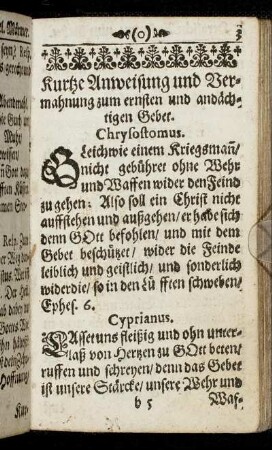 (o)
Kurtze Anweisung und Ver-
mahnung zum ernsten und andäch-
tigen Gebet.
Chrysostomus.
GLeichwie einem Kriegsmañ/
nicht gebühret ohne Wehr
und Waffen wider den Feind
zu gehen: Also soll ein Christ nicht
auffstehen und außgehen/ er habe sich
denn GOtt befohlen/ und mit dem
Gebet beschützet/ wider die Feinde
leiblich und geistlich/ und sonderlich
wider die/ so in den Lüfften schweben/
Ephes. 6.
Cyprianus.
LAsset uns fleißig und ohn unter-
laß von Hertzen zu GOtt beten/
ruffen und schreyen/ denn das Gebet
ist unsere Stärcke/ unsere Wehr und
b 5 Waf-